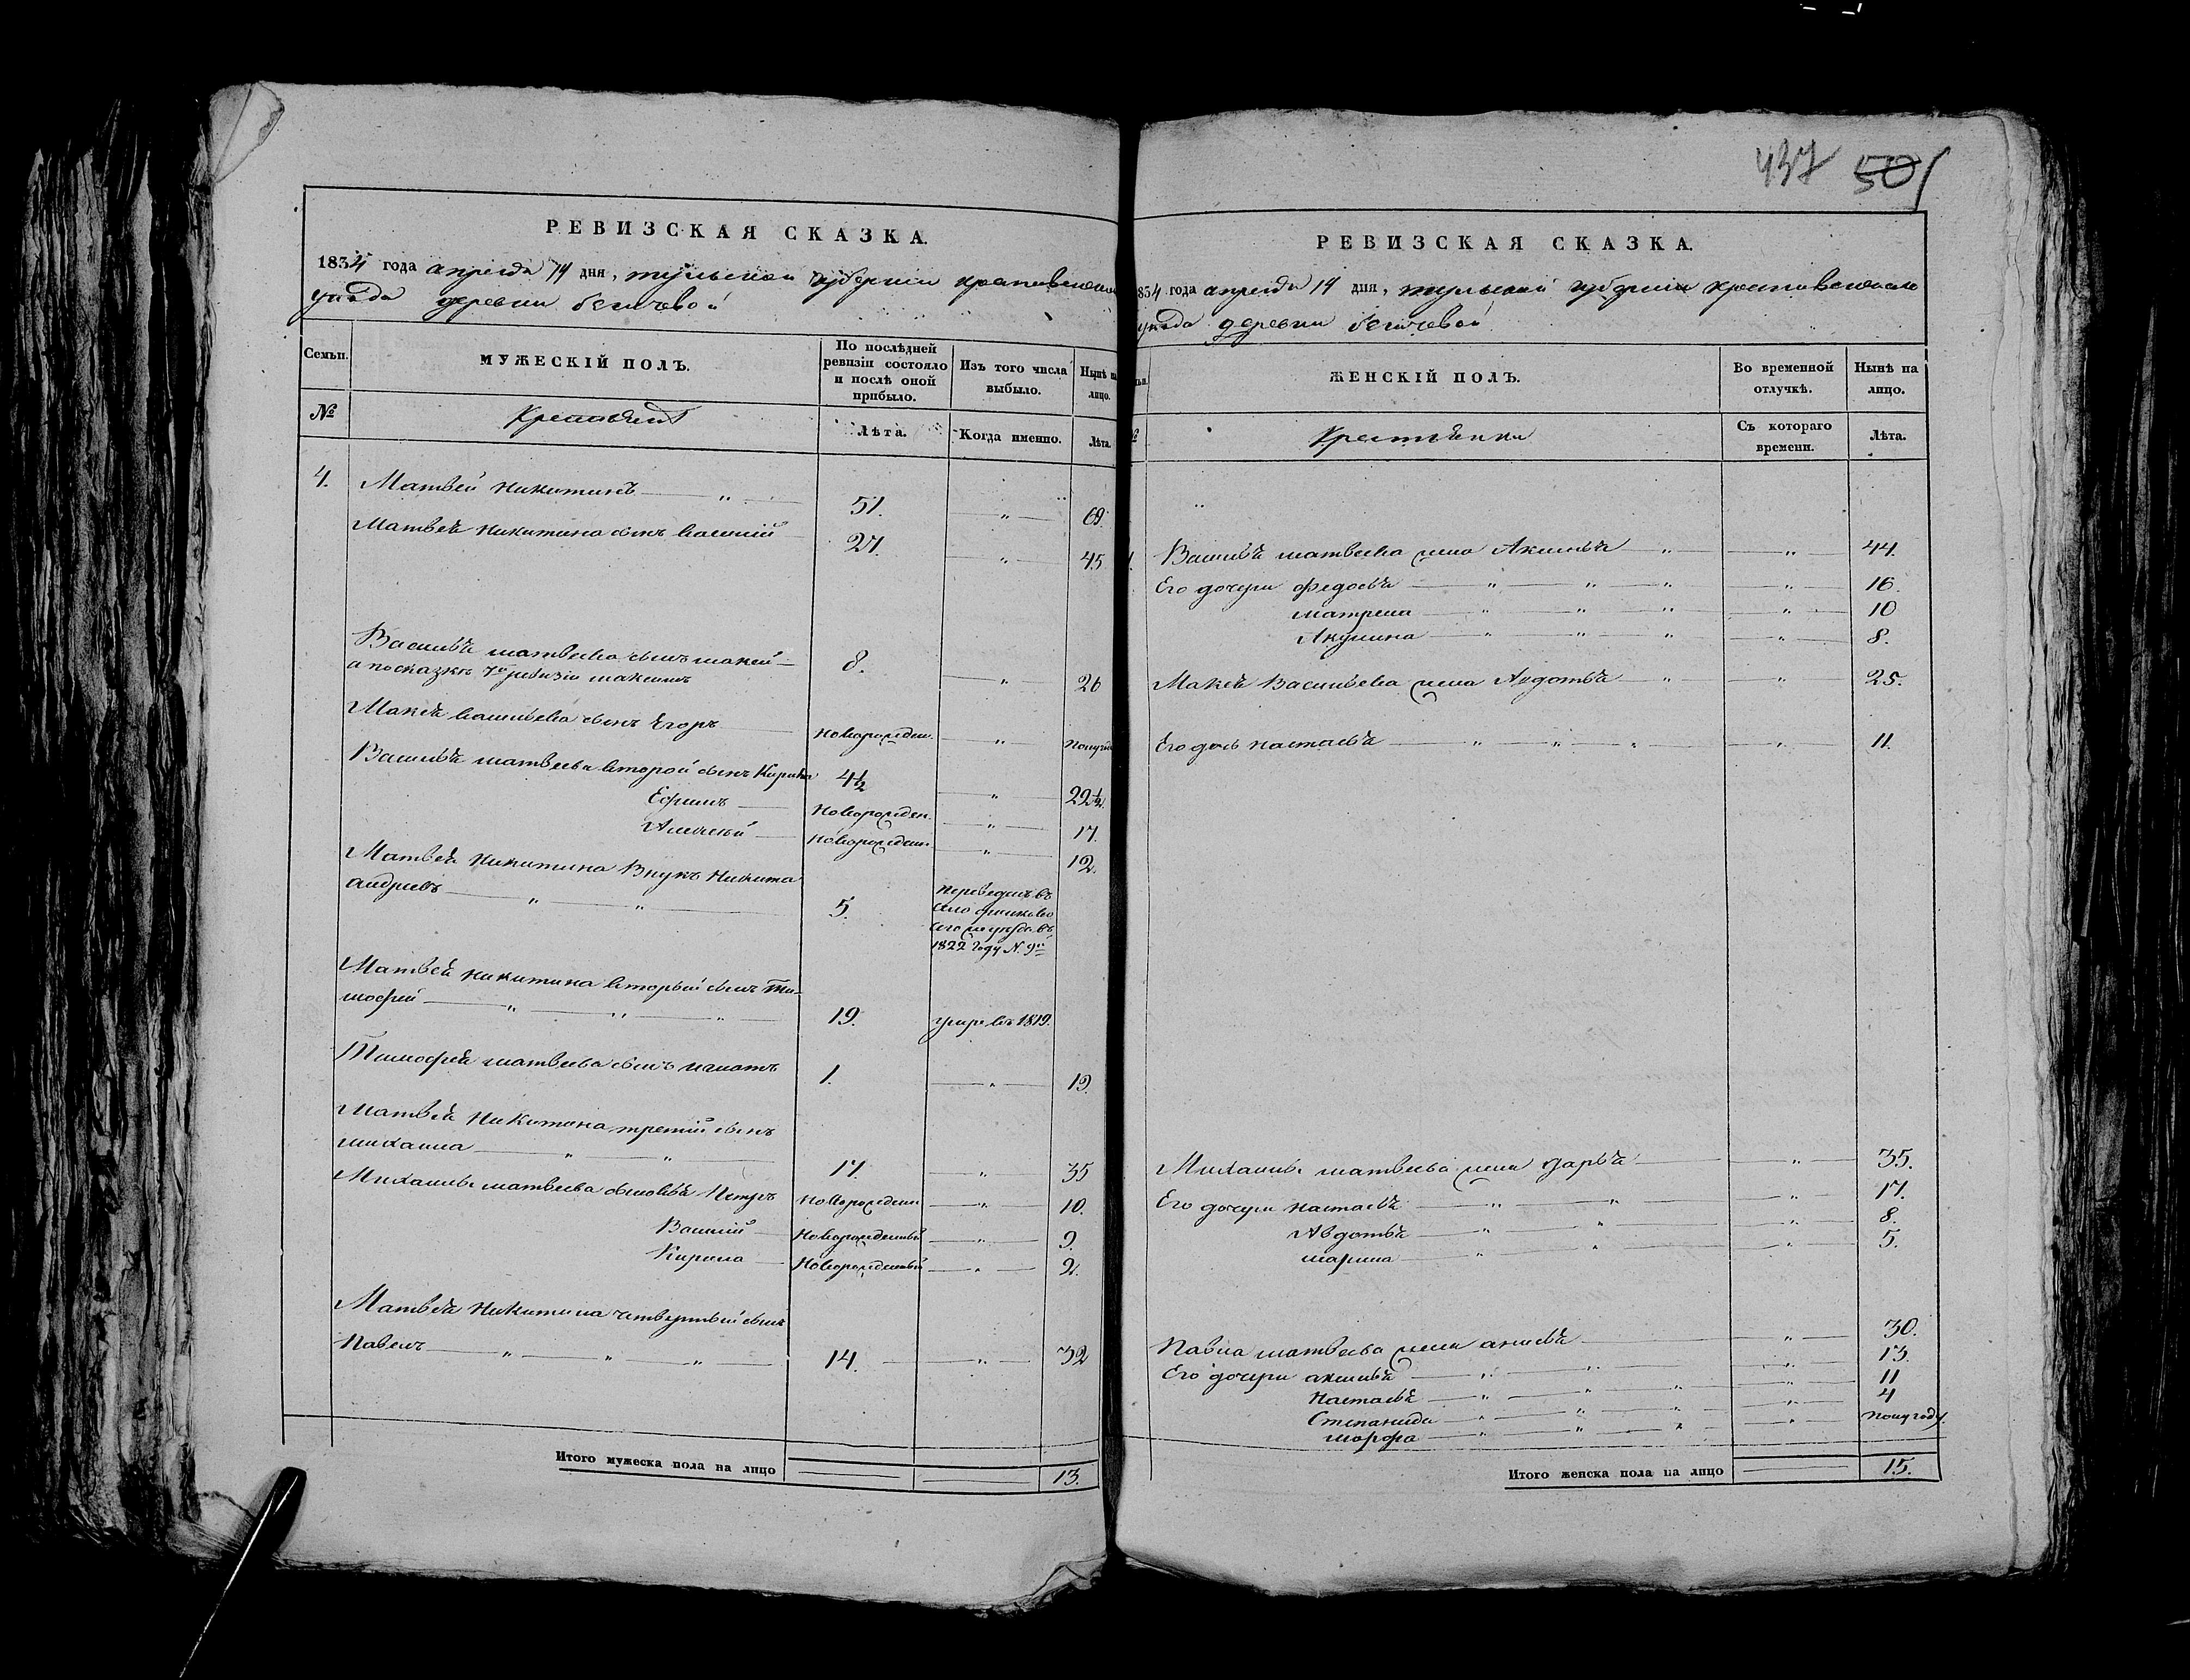 437 501
РЕВИЗСКАЯ СКАЗКА.
1834 года апреля 14 дня, тульской губернии крапивенскаго
уезда деревни бегичевой
Семьи.
МУЖЕСКІЙ ПОЛЪ.
По послѣдней ревизіи состояло и послѣ оной прибыло.
Изъ того числа выбыло.
Нынѣ на лицо.
№
Крестьяня
Лѣта.
Когда именно.
Лѣта.
4. Матвей никитинъ — „ — 51. — „ — 69.
Матвея никитина сынъ василий 27. — „ — 45
Василья матвеева сынъ макей — 8. — „ — 26
а по сказкѣ 7й ревизіи максимъ
Макея васильева сынъ Егоръ — новорожден. — „ — полуго
Василья матвеева второй сынъ Кирила 4½ — „ — 22½.
Ефимъ — новорожден. — „ — 17.
Алексей — новорожден. — „ — 12.
Матвея никитина Внукъ Никита
андреевъ — „ — „ — 5. переведенъ въ
село
1822 году N. 9й
Матвея никитина вторый сынъ Ти-
мофей — „ — „ — „ — 19. умре въ 1819.
Тимофея матвеева сынъ игнатъ 1. — „ — 19.
Матвея Никитина третий сынъ
михаила — „ — „ — 17. — „ — 35
Михаилы матвеева сыновья Петръ новорожден — „ — 10.
Василий — новорожденный — „ — 9.
Кирила — новорожденный — „ — 2.
Матвея никитина четвертый сынъ
Павелъ — „ — „ — „ — 14. — „ — 32
Итого мужеска пола на лицо — — 13.
РЕВИЗСКАЯ СКАЗКА.
834 года апреля 14 дня, тульской губернии крапивенскаго
уезда деревни бегичевой
ЖЕНСКІЙ ПОЛЪ.
Во временной отлучкѣ.
Нынѣ на лицо.
№
Крестьянки
Съ котораго времени.
Лѣта.
Василья матвеева жена Аксинья — „ — „ — 44.
Его дочери федосья — „ — „ — „ — „ — 16.
матрена — „ — „ — „ — „ — 10
Акулина — „ — „ — „ — „ — 8.
Макея Васильева жена Авдотья — „ — „ — 25.
Его дочь настасья — „ — „ — „ — „ — 11.
Михаилы матвеева жена дарья — „ — 35.
Его дочери настасья — „ — „ — „ — 17.
Авдотья — „ — „ — „ — 8.
марина — „ — „ — „ — 5.
Павла матвеева жена анисья — „ — 30.
Его дочери аксинья — „ — „ — „ — 13.
настасья — „ — „ — „ — „ — 11
Степанида — „ — „ — „ — „ — 4
марфа — „ — „ — „ — „ — полугоду.
Итого женска пола на лицо — 15.